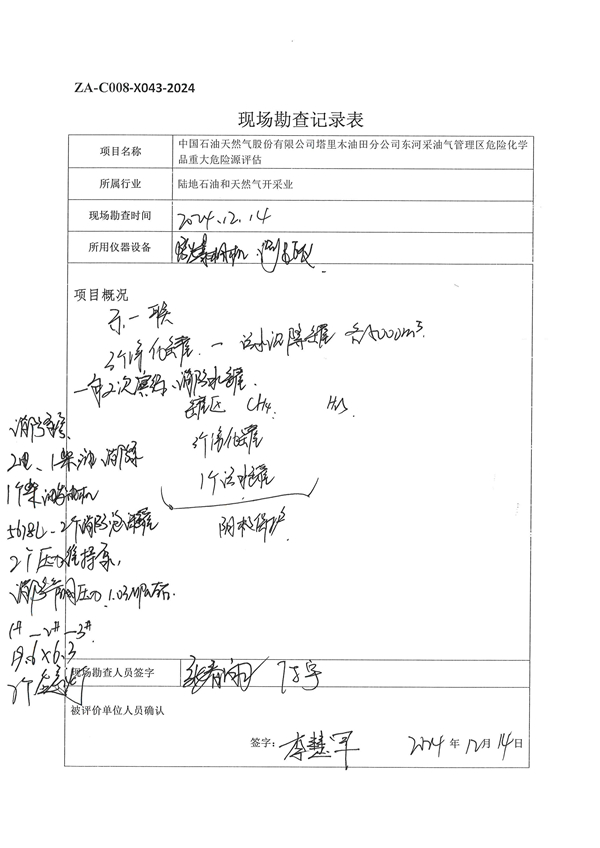 ZA-C008-X043-2024
现场勘查记录表
项目名称
中国石油天然气股份有限公司塔里木油田分公司东河采油气管理区危险化学
品重大危险源评估
所属行业
陆地石油和天然气开采业
现场勘查时间
2024.12.14
所用仪器设备
防爆相机
项目概况
东一联
3个净化油罐
一有2次 消防水罐.
罐区 CH4
3个净化油罐
1个 罐
阴极保护
消防泵房
2电、1柴油消防泵
1个柴油发电机
5678L-2个消防泡沫罐
2个压力维持泵,
消防 压力 1.03MPa
1# - 2# - 3#
19.6×6.3
现场勘查人员签字
被评价单位人员确认
签字:
李慧军
2024 年 12 月 14 日